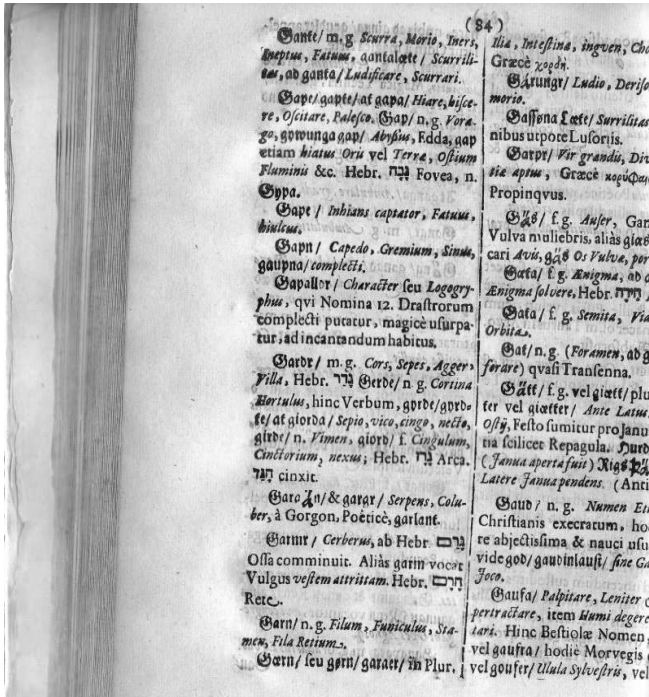 (84)
Gante/ m. g Scurra, Morio, Iners,
Ineptus, Fatuus, gantalæte/ Scurrili-
tas, ad ganta/ Ludificare, Scurrari.
Gape/ gapte/ at gapa/ Hiare, hisce-
re, Oscitare, Palesco. Gap/ n. g. Vora-
go, gowunga gap/ Abyssus, Edda, gap
etiam hiatus Oris vel Terræ, Ostium
Fluminis &c. Hebr. Fovea, n.
Gypa.
Gape/ Inhians captator, Fatuus,
hiulcus.
Gapn/ Capedo, Gremium, Sinus,
gaupna/ complecti.
Gapallor/ Character seu Logogry-
phus, qvi Nomina 12. Drastrorum
complecti putatur, magicè usurpa-
tur, ad incantandum habitus.
Gardr/ m. g. Cors, Sepes, Agger,
Villa, Hebr. גדר Gerde/ n. g. Cortina
Hortulus, hinc Verbum, gyrde/ gyrd-
te/ at giorda/ Sepio, vico, cingo, necto,
girde/ n. Vimen, giord/ f. Cingulum,
Cinctorium, nexus; Hebr. Arca.
חגר cinxit.
Garg / & gargr/ Serpens, Colu-
ber, à Gorgon, Poëticè, garlant.
Garmr/ Cerberus, ab Hebr גרם
Ossa comminuit. Aliàs garm vocat
Vulgus vestem attrittam. Hebr. חרם
Rete.
Garn/ n. g. Filum, Funiculus, Sta-
men, Fila Retium.
Gærn/ seu gørn/ garner/ in Plur.
Ilia, Intestina, ingven, Cho
Græcè χορδη.
Gárungr/ Ludio, Deriso
morio.
Gassona Læte/ Surrilitas
nibus utpote Lusoriis.
Garpr/ Vir grandis, Div
tiæ aptus, Græcè
Propinqvus.
Gäs/ f. g. Anser, Gan
Vulva muliebris, aliàs giæs
cari Avis, gäs Os Vulvæ, por
Gæta/ f. g. Ænigma, ad
Ænigma solvere, Hebr. חידה
Gata/ f. g. Semita, Via
Orbita.
Gat/ n. g. (Foramen, ad g
forare) qvasi Transenna.
Gätt/ f. g. vel giætt/ plu
ter vel giætter/ Ante Latus
Ostij, Festo sumitur pro Janu
tia scilicet Repagula. Hurd
(Janua aperta fuit) Rigs
Latere Janua pendens. (Anti
Gaud/ n. g. Numen Et
Christianis execratum, ho
re abjectissima & nauci usu
vide god/ gaudinlaust/ sine Ga
Joco.
Gaufa/ Palpitare, Leniter
pertractare, item Humi degere
tari. Hinc Bestiolæ Nomen,
vel gaufra/ hodiè Morvegis
vel goufer/ Ulula Sylvestris, vel